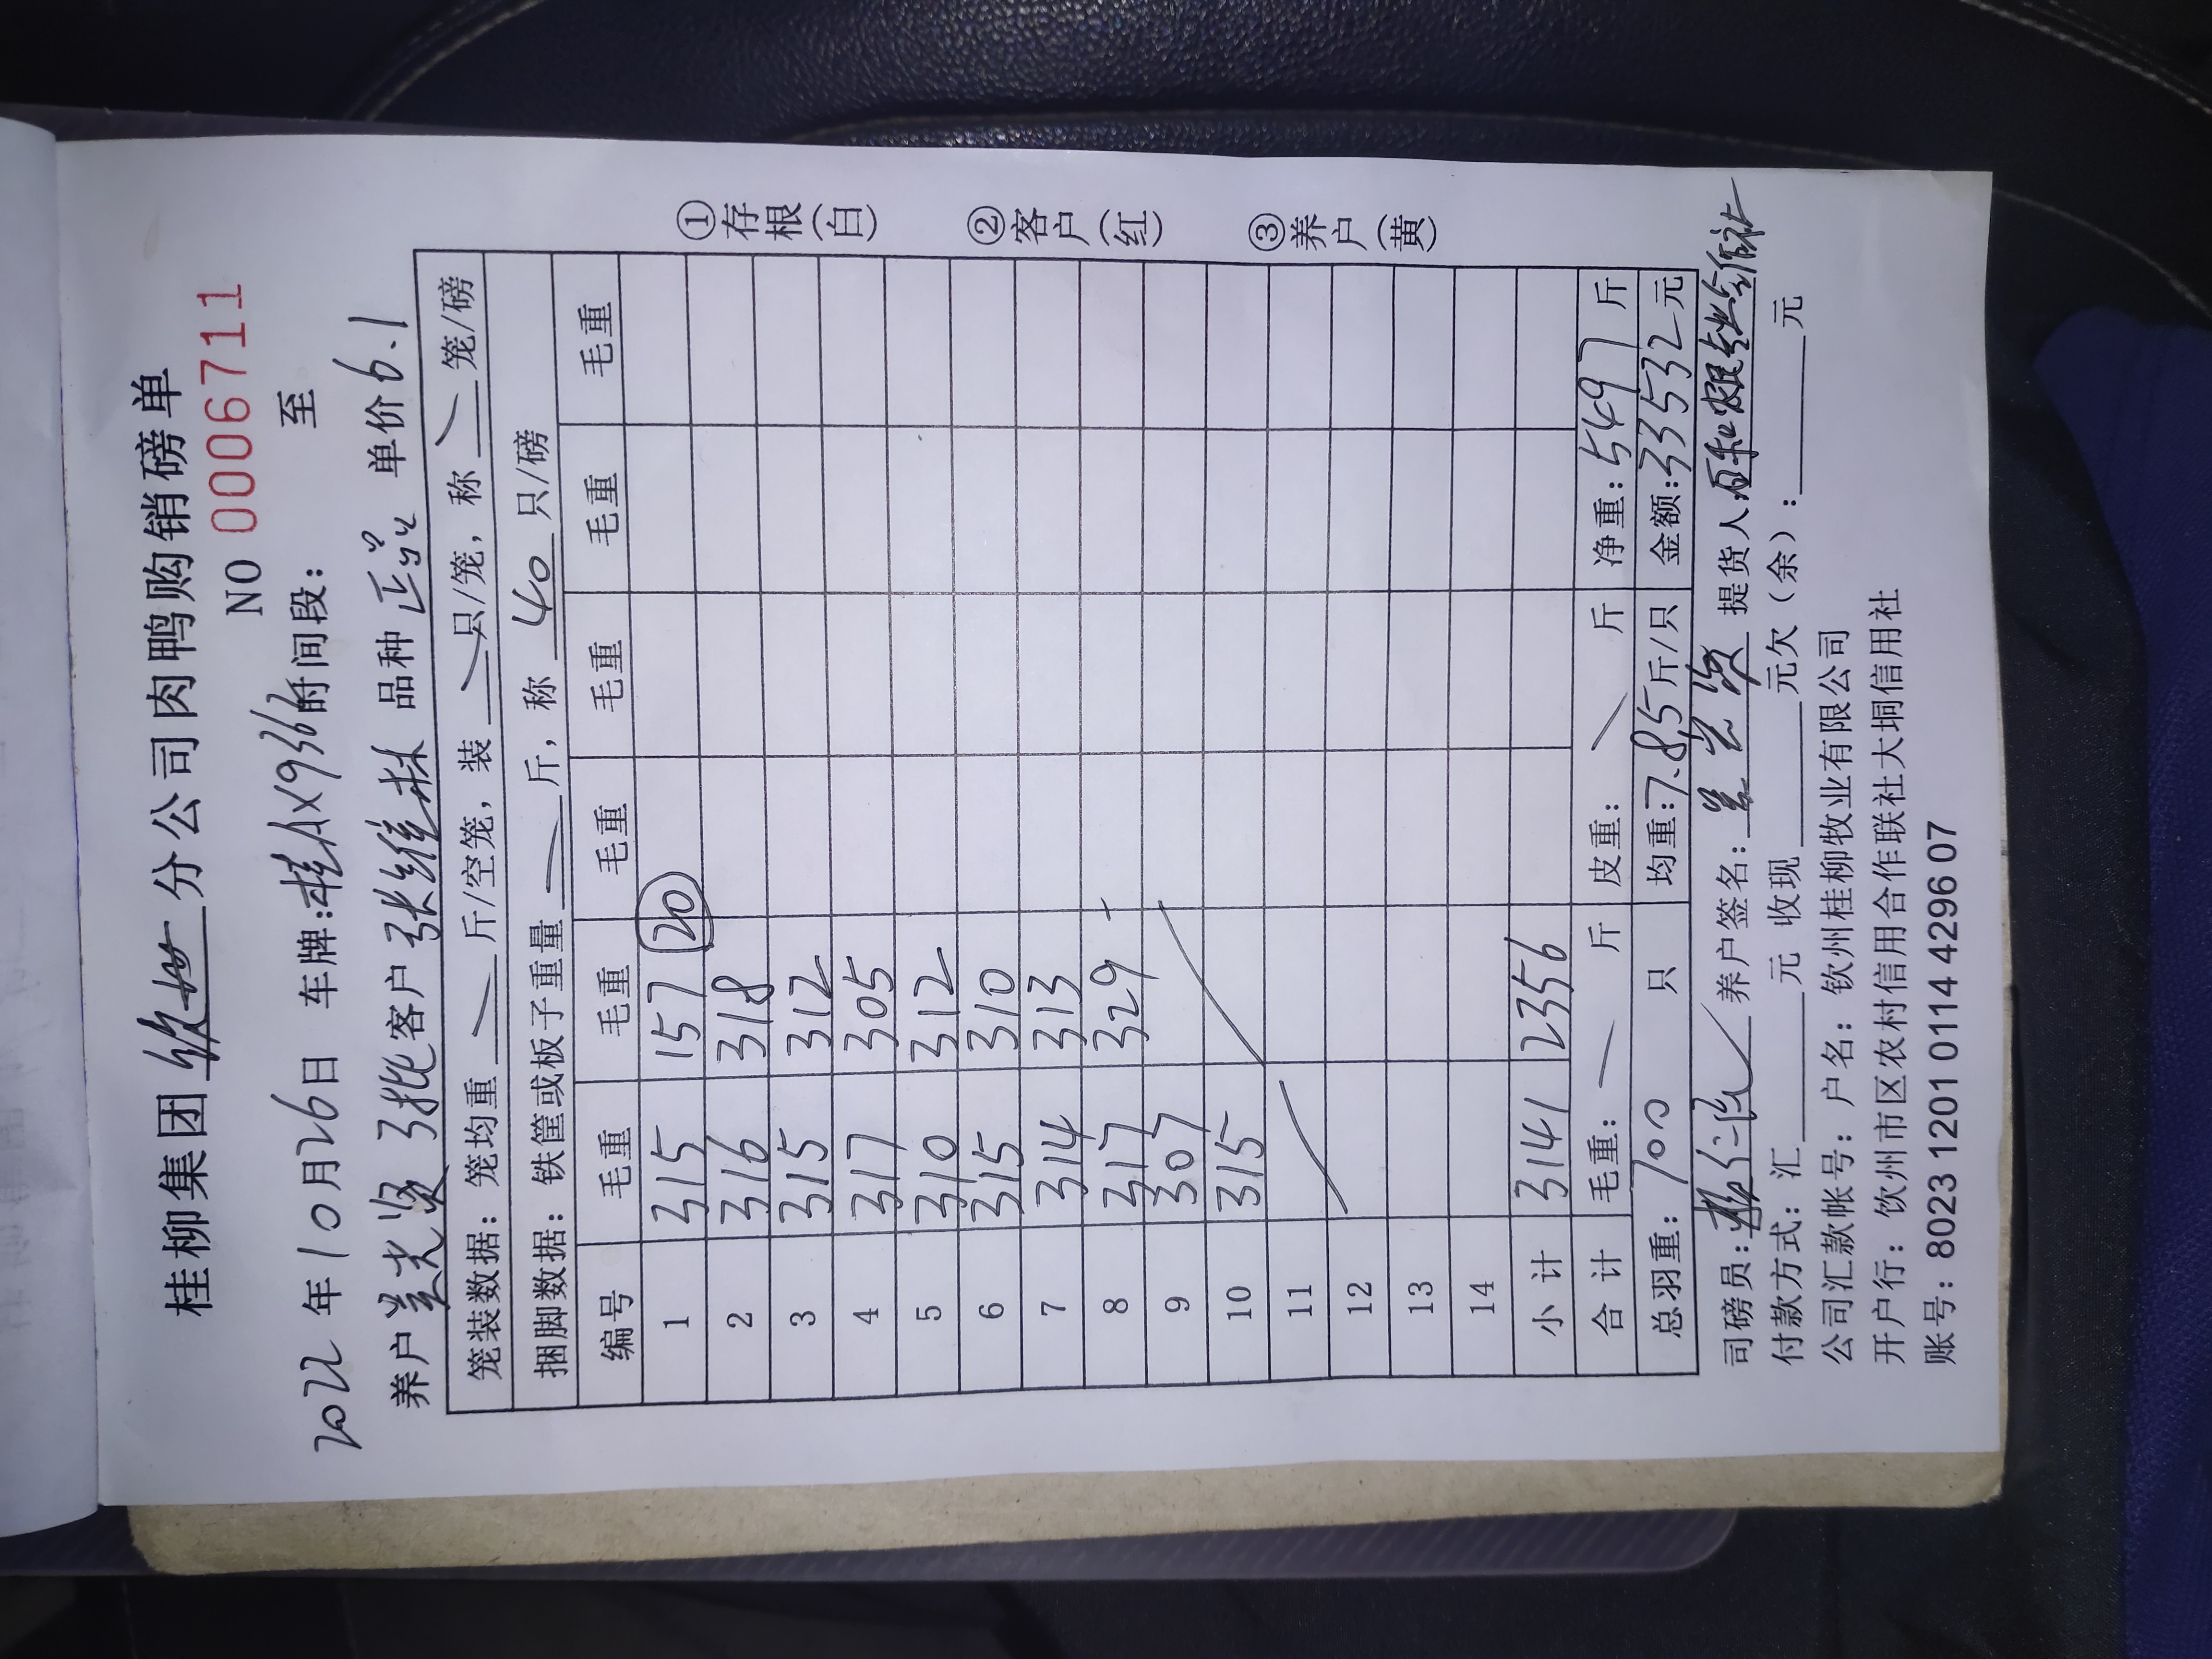 桂柳集团 钦州 分公司肉鸭购销磅单
NO 0006711
2022年10月26日 车牌:桂AX9366时间段: 至
养户 3批客户 张维林 品种 正品 单价6.1
笼装数据: 笼均重 / 斤/空笼, 装 / 只/笼, 称 / 笼/磅
捆脚数据: 铁筐或板子重量 / 斤, 称 40 只/磅
编号 毛重 毛重 毛重 毛重 毛重 毛重
1 315 157 20
2 316 318
3 315 312
4 317 305
5 310 312
6 315 310
7 314 313
8 317 329
9 307 /
10 315
11 /
12
13
14
小计 3141 2356
合计 毛重: / 斤 皮重: / 斤 净重: 5497 斤
总羽重: 700 只 均重:7.85斤/只 金额:33532元
司磅员: 养户签名: 提货人:
付款方式: 汇 元 收现 元欠(余): 元
公司汇款帐号: 户名: 钦州桂柳牧业有限公司
开户行: 钦州市区农村信用合作联社大垌信用社
账号: 8023 1201 0114 4296 07
①存根(白)
②客户(红)
③养户(黄)